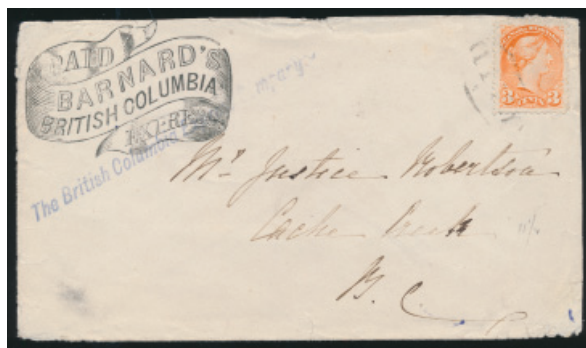 PAID
BARNARD'S
BRITISH COLUMBIA
EXPRESS
The British Columbia
mpany
3 CENTS 3
Mr Justice Robertson
Cache Creek
B.C.